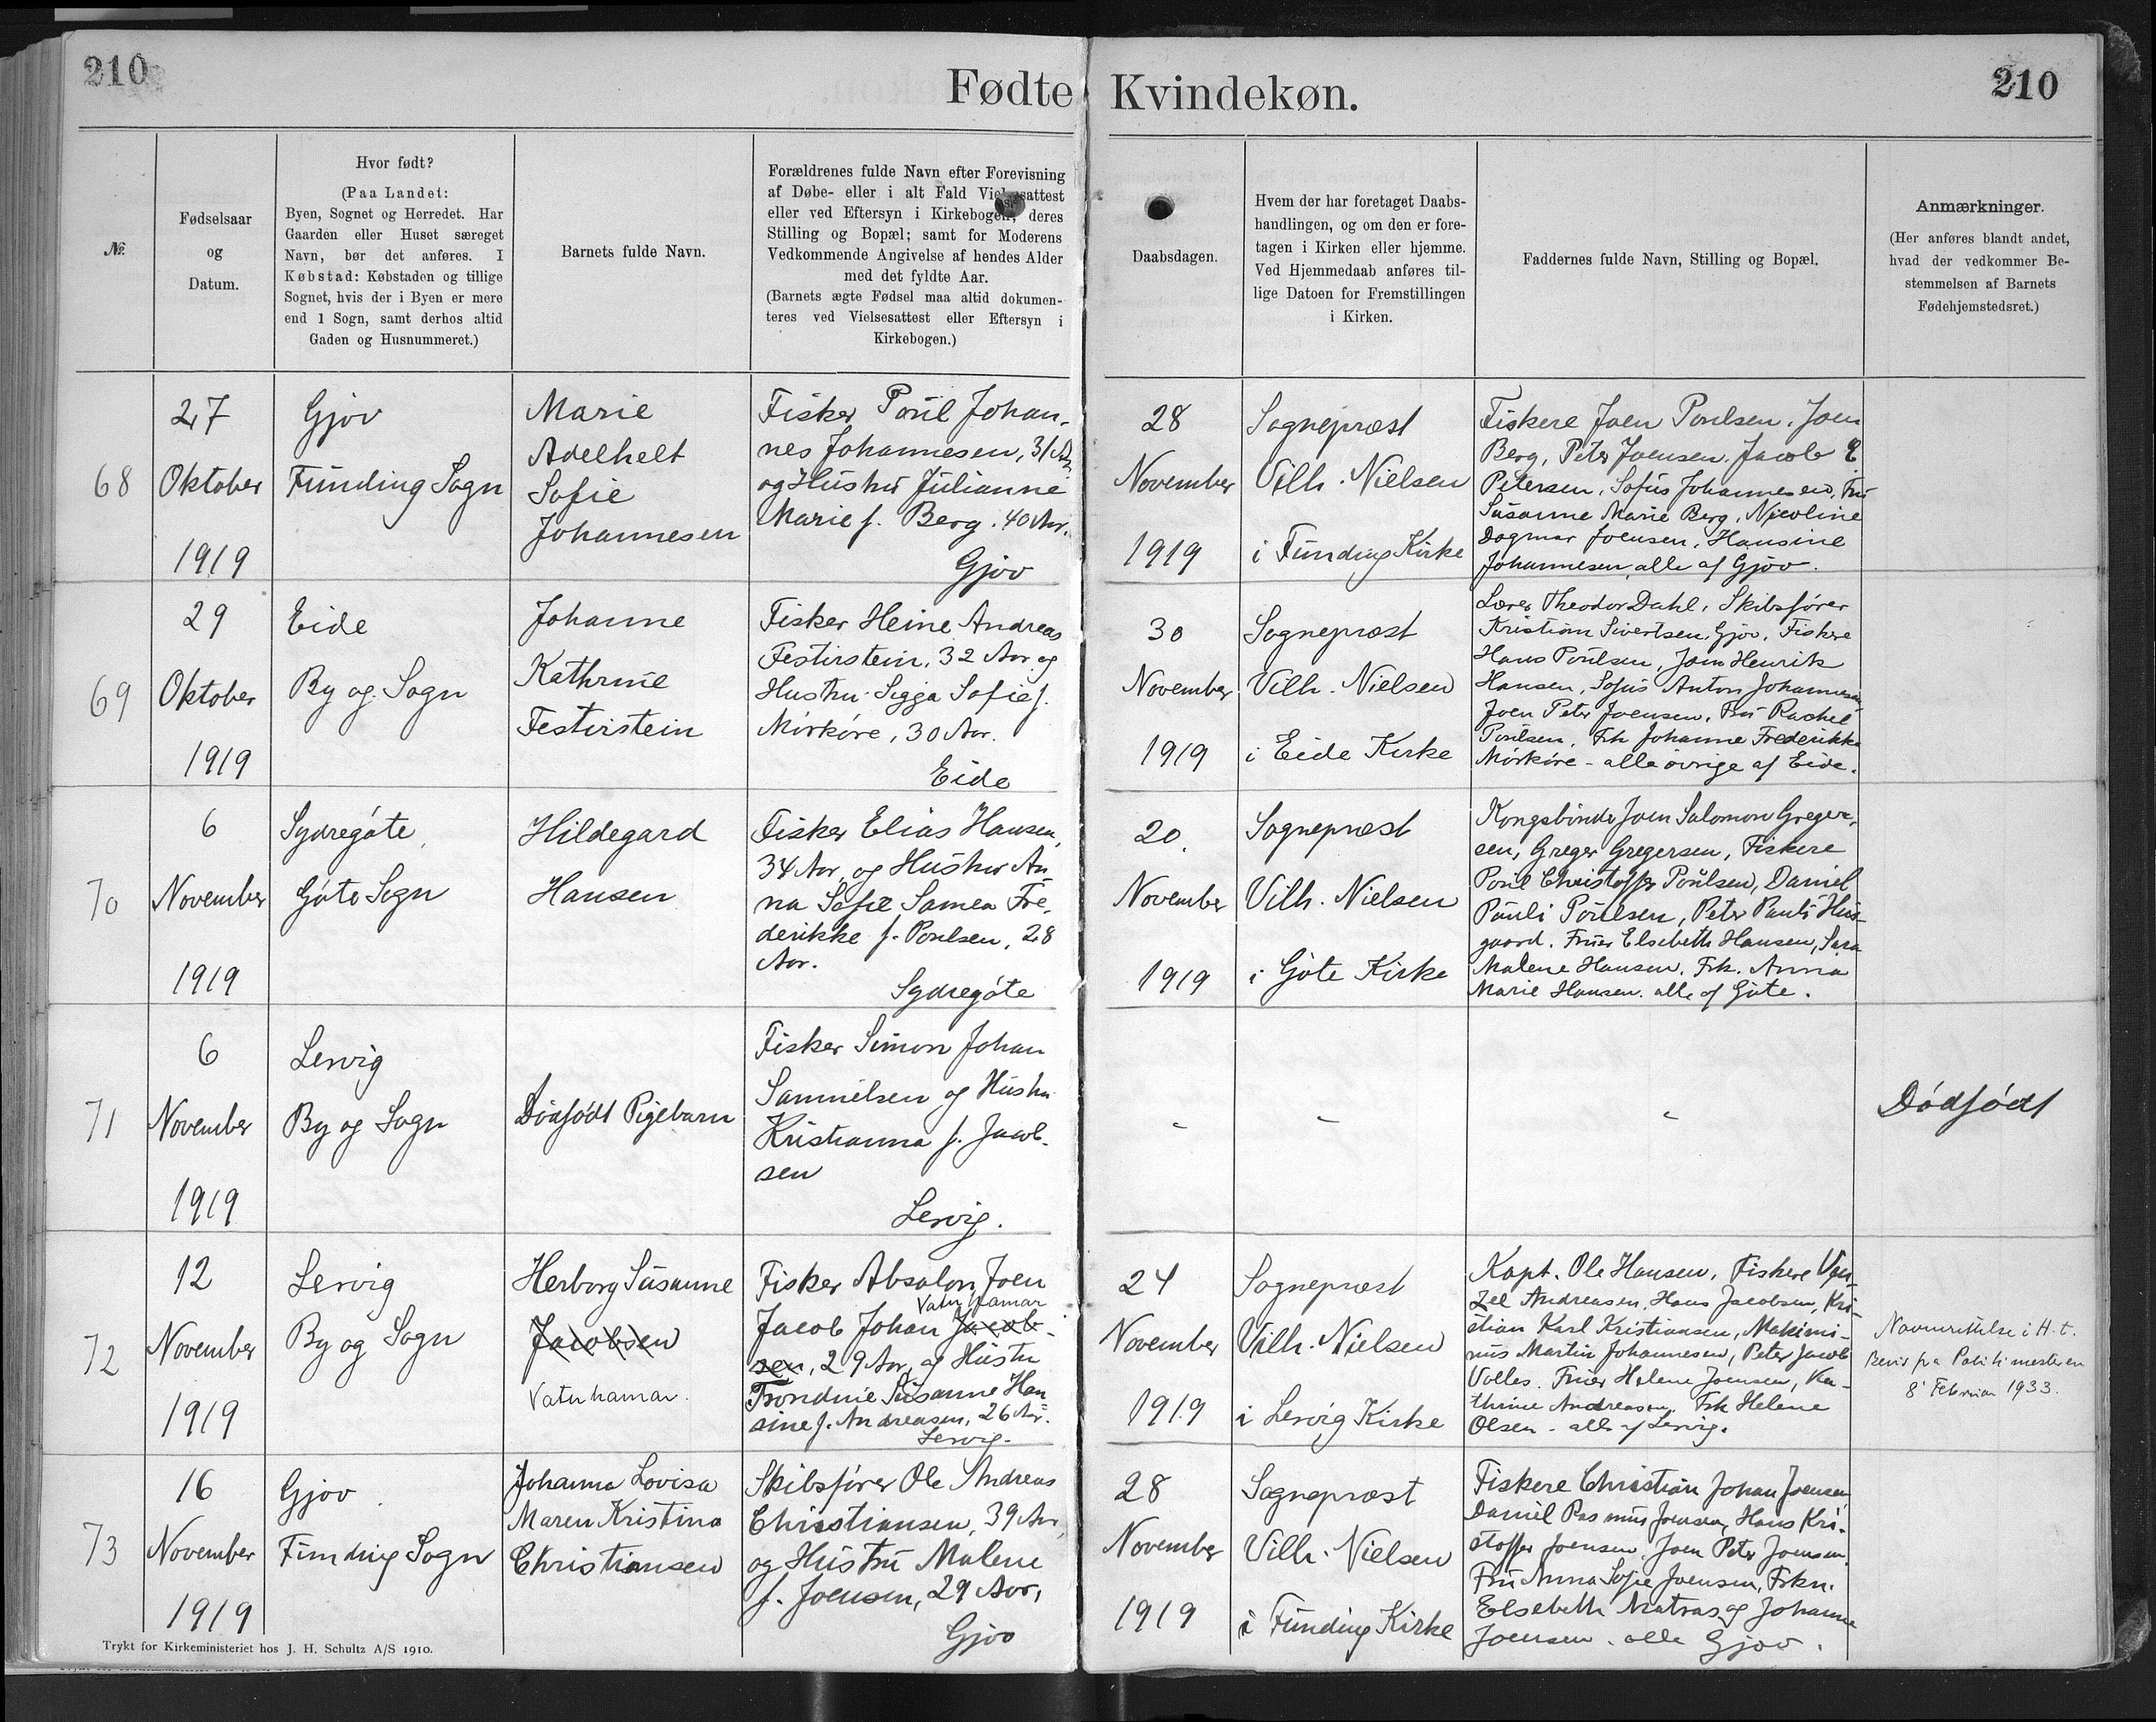 210
210
Fødte Kvindekøn.
№
Fødselsaar
og
Datum.
Hvor født?
(Paa Landet:
Byen, Sognet og Herredet. Har
Gaarden eller Huset særeget
Navn, bør det anføres. I
Købstad: Købstaden og tillige
Sognet, hvis der i Byen er mere
end 1 Sogn, samt derhos altid
Gaden og Husnummeret.)
Barnets fulde Navn.
Forældrenes fulde Navn efter Forevisning
af Døbe- eller i alt Fald Vielsesattest
eller ved Eftersyn i Kirkebogen, deres
Stilling og Bopæl; samt for Moderens
Vedkommende Angivelse af hendes Alder
med det fyldte Aar.
(Barnets ægte Fødsel maa altid dokumen-
teres ved Vielsesattest eller Eftersyn i
Kirkebogen.)
Daabsdagen.
Hvem der har foretaget Daabs-
handlingen, og om den er fore-
tagen i Kirken eller hjemme.
Ved Hjemmedaab anføres til-
lige Datoen for Fremstillingen
i Kirken.
Faddernes fulde Navn, Stilling og Bopæl.
Anmærkninger.
(Her anføres blandt andet,
hvad der vedkommer Be-
stemmelsen af Barnets
Fødehjemstedsret.)
68
27
Oktober
1919
Gjov
Funding Sogn
Marie
Adelhelt
Sofie
Johannesen
Fisker Poul Johan-
nes Johannesen, 31 Aar
og Hustru Julianne
Marie f. Berg. 40 Aar.
Gjov
28
November
1919
Sognepræst
Vilh. Nielsen
i Funding Kirke
Fiskere Joen Poulsen, Joen
Berg, Peter Joensen, Jacob E
Petersen, Sofus Johannesen, Fru
Susanne Marie Berg, Nicoline
Dagmar Joensen, Hansine
Johannesen, alle af Gjov.
69
29
Oktober
1919
Eide
By og Sogn
Johanne
Kathrine
Festirstein
Fisker Heine Andreas
Festirstein, 32 Aar og
Hustru Sigga Sofie f.
Mørkøre, 30 Aar.
Eide
30
November
1919
Sognepræst
Vilh. Nielsen
i Eide Kirke
Lærer Theodor Dahl, Skibsfører
Kristian Sivertsen, Gjov, Fiskere
Hans Poulsen, Joen Henrik
Hansen, Sofus Anton Johannesen
Joen Peter Joensen, Fru Rachel
Poulsen, Frk Johanne Frederikke
Mørkøre - alle øvrige af Eide.
70
6
November
1919
Sydregøte
Gøte Sogn
Hildegard
Hansen
Fisker Elias Hansen,
34 Aar, og Hustru An-
na Sofie Samea Fre-
derikke f. Poulsen, 28
Aar.
Sydregøte
20.
November
1919
Sognepræst
Vilh. Nielsen
i Gøte Kirke
Kongsbonde Joen Salomon Greger-
sen, Greger Gregersen, Fiskere
Poul Christoffer Poulsen, Daniel
Pauli Poulsen, Peter Pauli Hus-
gaard. Fruer Elsebeth Hansen, Sara
Malene Hansen. Frk. Anna
Marie Hansen. alle af Gøte.
71
6
November
1919
Lervig
By og Sogn
Dødfødt Pigebarn
Fisker Simon Johan
Samuelsen og Hustru
Kristianna f. Jacob-
sen
Lervig.
-
-
-
Dødfødt
72
12
November
1919
Lervig
By og Sogn
Herborg Susanne
Jacobsen
Vatnhamar.
Fisker Absalon Joen
Vatnhamar
Jacob Johan Jacob-
sen, 29 Aar, og Hustru
Trondine Susanne Han
sine f. Andreasen, 26 Aar.
Lervig.
24
November
1919
Sognepræst
Vilh. Nielsen
i Lervig Kirke
Kapt. Ole Hansen, Fiskere Ven-
zel Andreasen, Hans Jacobsen, Kri-
stian Karl Kristiansen, Makimi-
nus Martin Johannesen, Peter Jacob
Volles. Fruer Helene Joensen, Ka-
thrine Andreasen. Frk Helene
Olsen - alle af Lervig.
Navnerettelse i H. t.
Bevis fra Politimesteren
8' Februar 1933.
73
16
November
1919
Gjov
Funding Sogn
Johanna Lovisa
Maren Kristina
Christiansen
Skibsfører Ole Andreas
Christiansen, 39 Aar,
og Hustru Malene
f. Joensen, 29 Aar,
Gjov
28
November
1919
Sognepræst
Vilh. Nielsen
i Funding Kirke
Fiskere Christian Johan Joensen
Daniel Rasmus Joensen, Hans Kri-
stoffer Joensen, Joen Peter Joensen.
Fru Anna Sofie Joensen, Frkn.
Elsebeth Matras og Johanne
Joensen. alle Gjov.
Trykt for Kirkeministeriet hos J. H. Schultz A/S 1910.